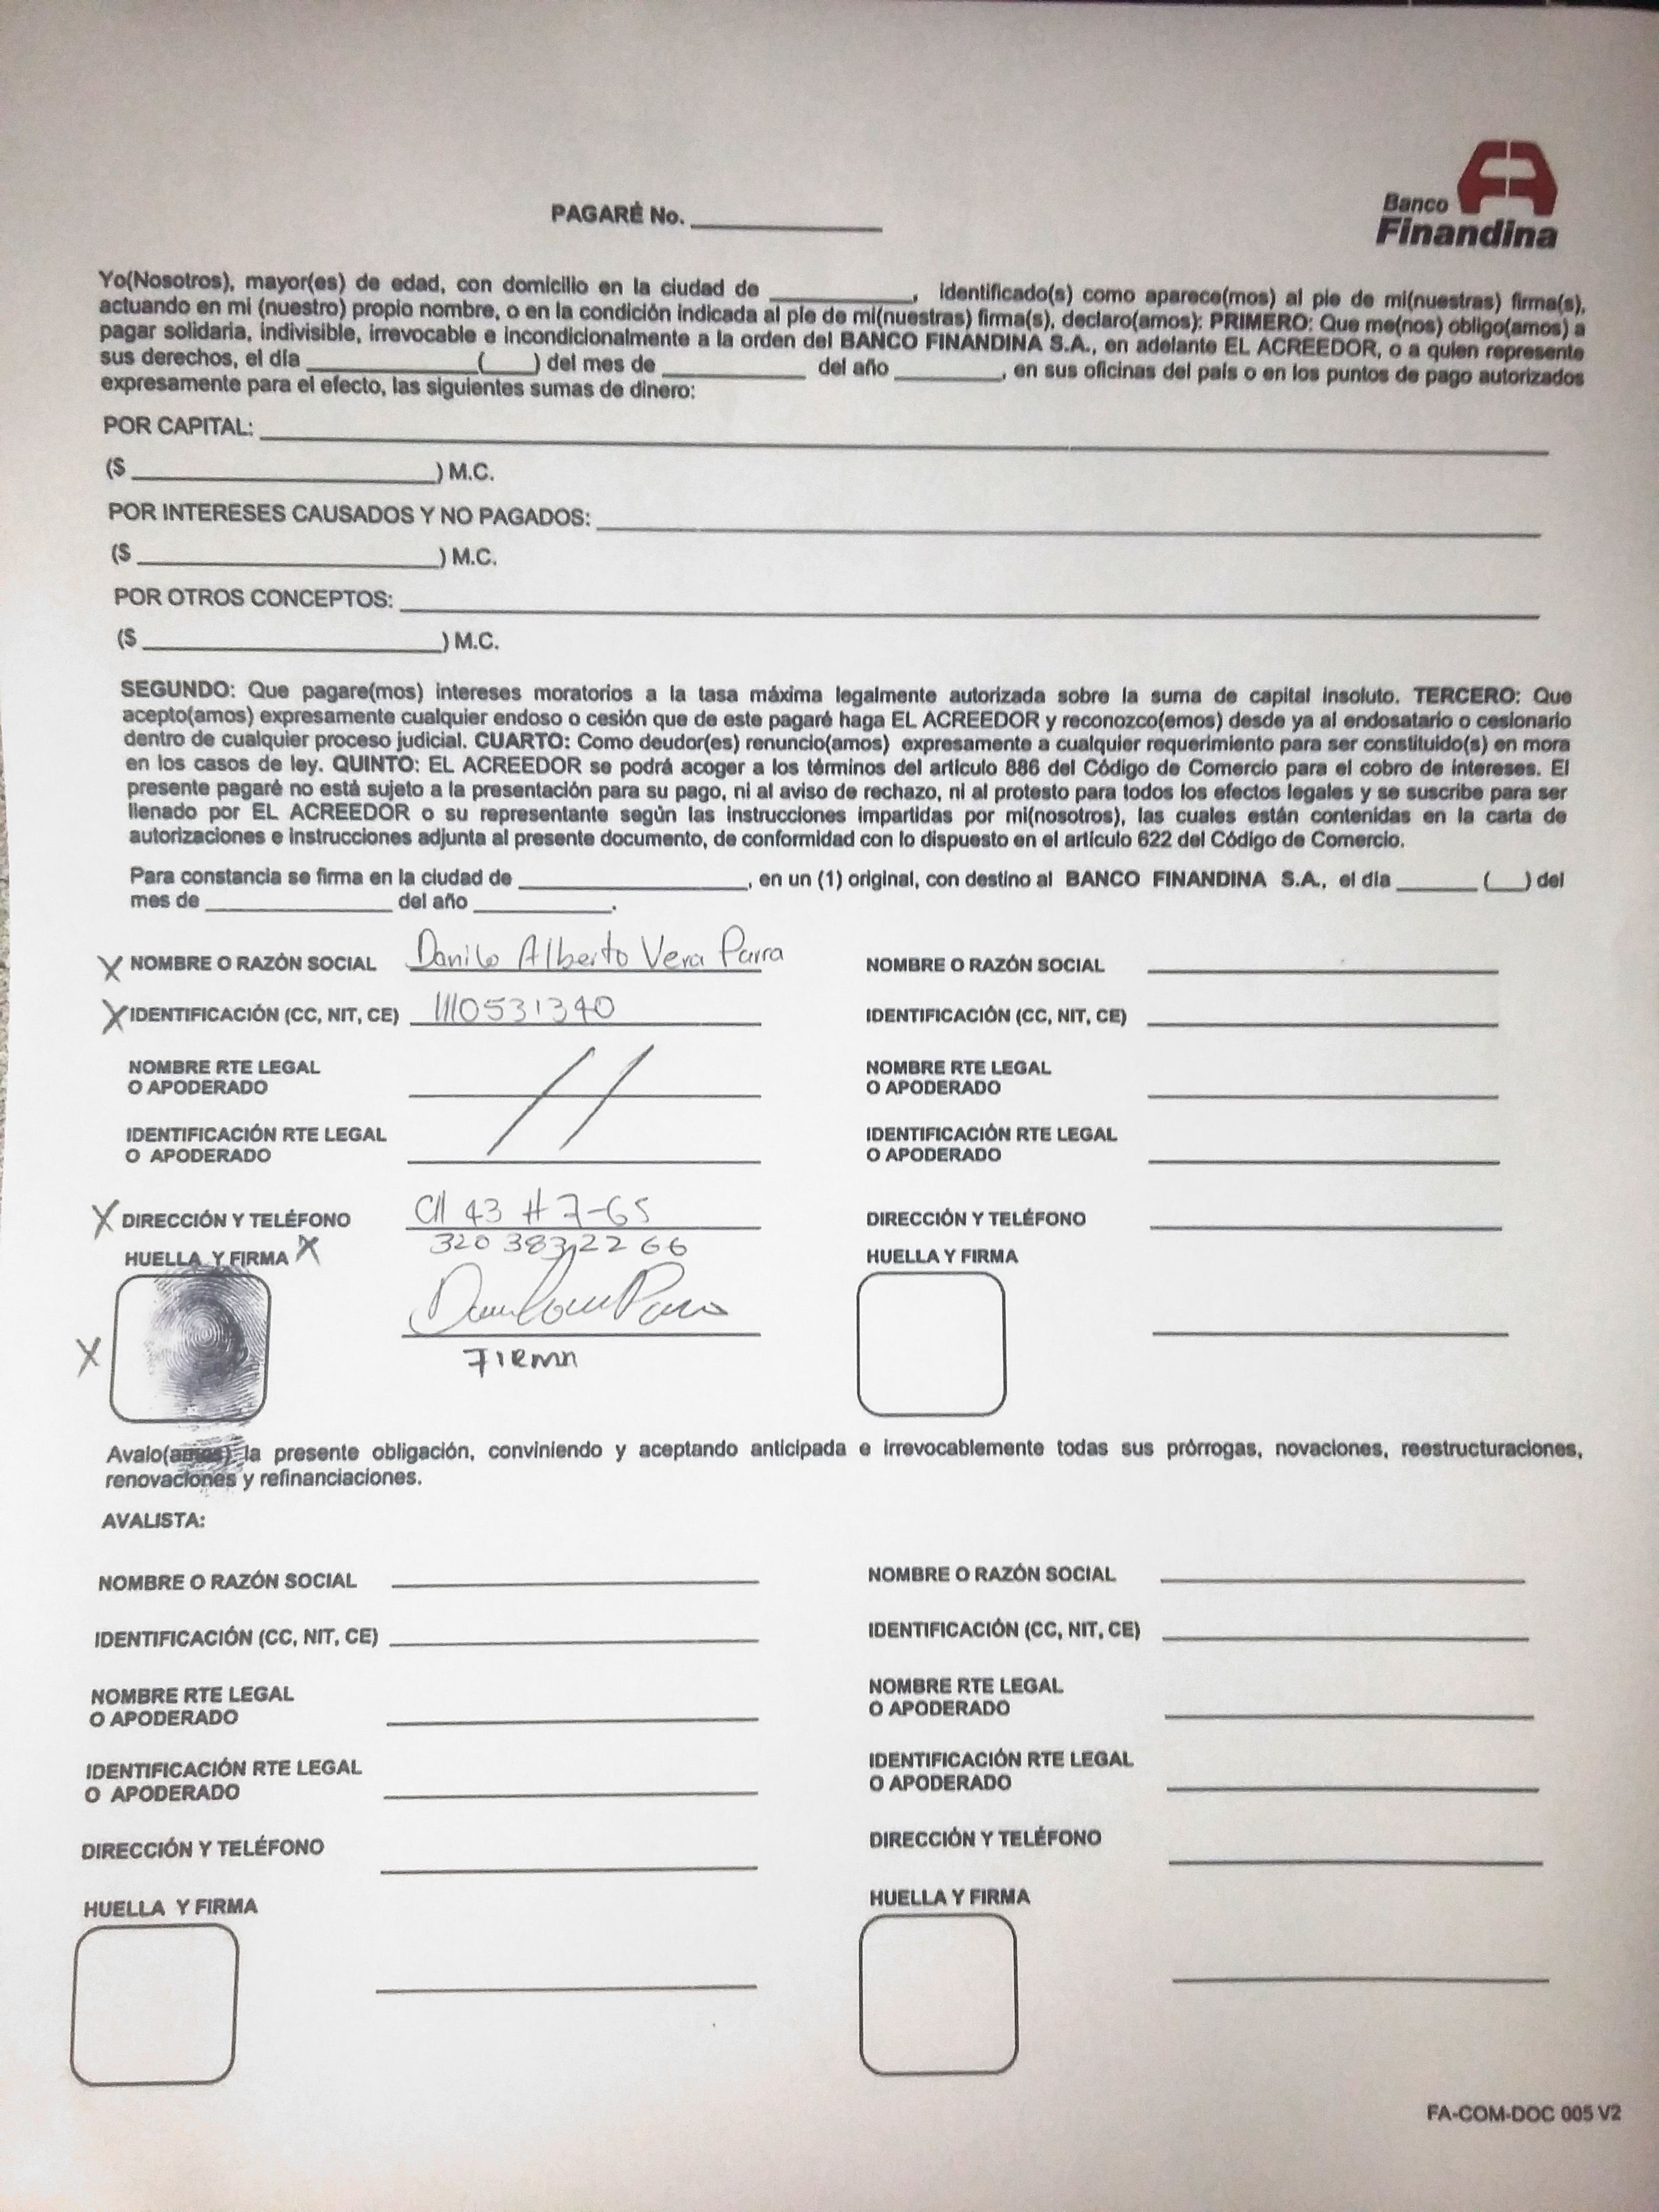 Banco
Finandina
PAGARÉ No. ____________
Yo(Nosotros), mayor(es) de edad, con domicilio en la ciudad de __________, identificado(s) como aparece(mos) al pie de mi(nuestras) firma(s),
actuando en mi (nuestro) propio nombre, o en la condición indicada al pie de mi(nuestras) firma(s), declaro(amos): PRIMERO: Que me(nos) obligo(amos) a
pagar solidaria, indivisible, irrevocable e incondicionalmente a la orden del BANCO FINANDINA S.A., en adelante EL ACREEDOR, o a quien represente
sus derechos, el día ____________(____) del mes de __________ del año ________, en sus oficinas del país o en los puntos de pago autorizados
expresamente para el efecto, las siguientes sumas de dinero:
POR CAPITAL: ____________
($ ____________) M.C.
POR INTERESES CAUSADOS Y NO PAGADOS: ____________
($ ____________) M.C.
POR OTROS CONCEPTOS: ____________
($ ____________) M.C.
SEGUNDO: Que pagare(mos) intereses moratorios a la tasa máxima legalmente autorizada sobre la suma de capital insoluto. TERCERO: Que
acepto(amos) expresamente cualquier endoso o cesión que de este pagaré haga EL ACREEDOR y reconozco(emos) desde ya al endosatario o cesionario
dentro de cualquier proceso judicial. CUARTO: Como deudor(es) renuncio(amos) expresamente a cualquier requerimiento para ser constituido(s) en mora
en los casos de ley. QUINTO: EL ACREEDOR se podrá acoger a los términos del artículo 886 del Código de Comercio para el cobro de intereses. El
presente pagaré no está sujeto a la presentación para su pago, ni al aviso de rechazo, ni al protesto para todos los efectos legales y se suscribe para ser
llenado por EL ACREEDOR o su representante según las instrucciones impartidas por mi(nosotros), las cuales están contenidas en la carta de
autorizaciones e instrucciones adjunta al presente documento, de conformidad con lo dispuesto en el artículo 622 del Código de Comercio.
Para constancia se firma en la ciudad de ____________, en un (1) original, con destino al BANCO FINANDINA S.A., el día ______ (___) del
mes de ____________ del año __________.
X NOMBRE O RAZÓN SOCIAL Danilo Alberto Vera Parra NOMBRE O RAZÓN SOCIAL
X IDENTIFICACIÓN (CC, NIT, CE) 1110531340 IDENTIFICACIÓN (CC, NIT, CE)
NOMBRE RTE LEGAL NOMBRE RTE LEGAL
O APODERADO O APODERADO
IDENTIFICACIÓN RTE LEGAL IDENTIFICACIÓN RTE LEGAL
O APODERADO O APODERADO
X DIRECCIÓN Y TELÉFONO Cll 43 # 7-65 DIRECCIÓN Y TELÉFONO
HUELLA Y FIRMA X 320 383 22 66 HUELLA Y FIRMA
X
FIRMA
Avalo(amos) la presente obligación, conviniendo y aceptando anticipada e irrevocablemente todas sus prórrogas, novaciones, reestructuraciones,
renovaciones y refinanciaciones.
AVALISTA:
NOMBRE O RAZÓN SOCIAL NOMBRE O RAZÓN SOCIAL
IDENTIFICACIÓN (CC, NIT, CE) IDENTIFICACIÓN (CC, NIT, CE)
NOMBRE RTE LEGAL NOMBRE RTE LEGAL
O APODERADO O APODERADO
IDENTIFICACIÓN RTE LEGAL IDENTIFICACIÓN RTE LEGAL
O APODERADO O APODERADO
DIRECCIÓN Y TELÉFONO DIRECCIÓN Y TELÉFONO
HUELLA Y FIRMA HUELLA Y FIRMA
FA-COM-DOC 005 V2